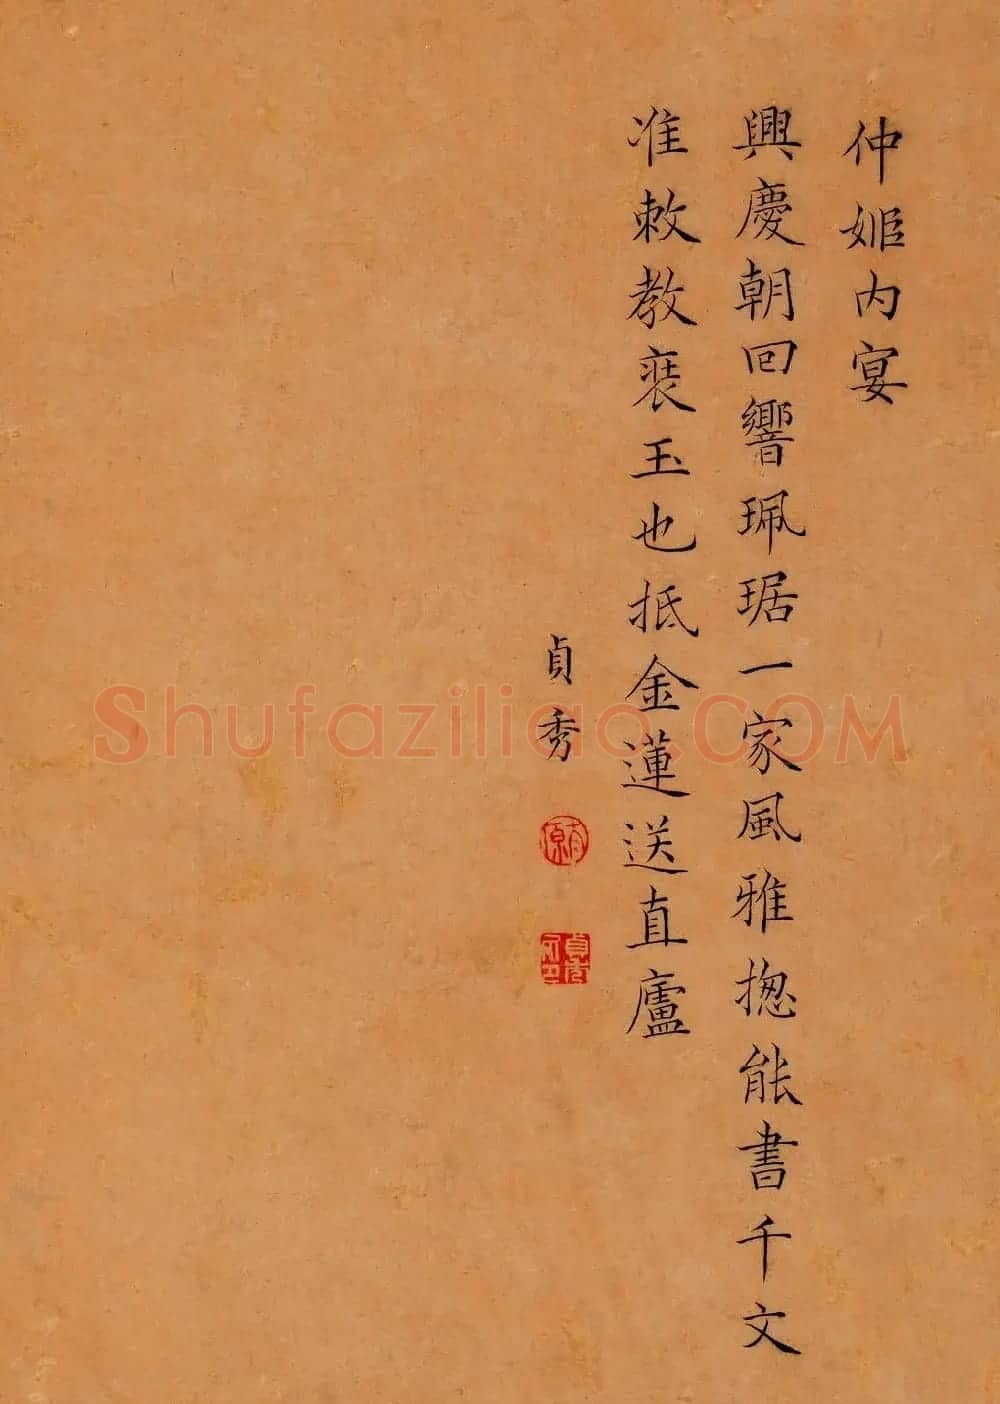 仲姬内宴
興慶朝回響珮琚一家風雅揔能書千文
准敕教裝玉也抵金蓮送直廬
貞秀
Shufaziliao.COM